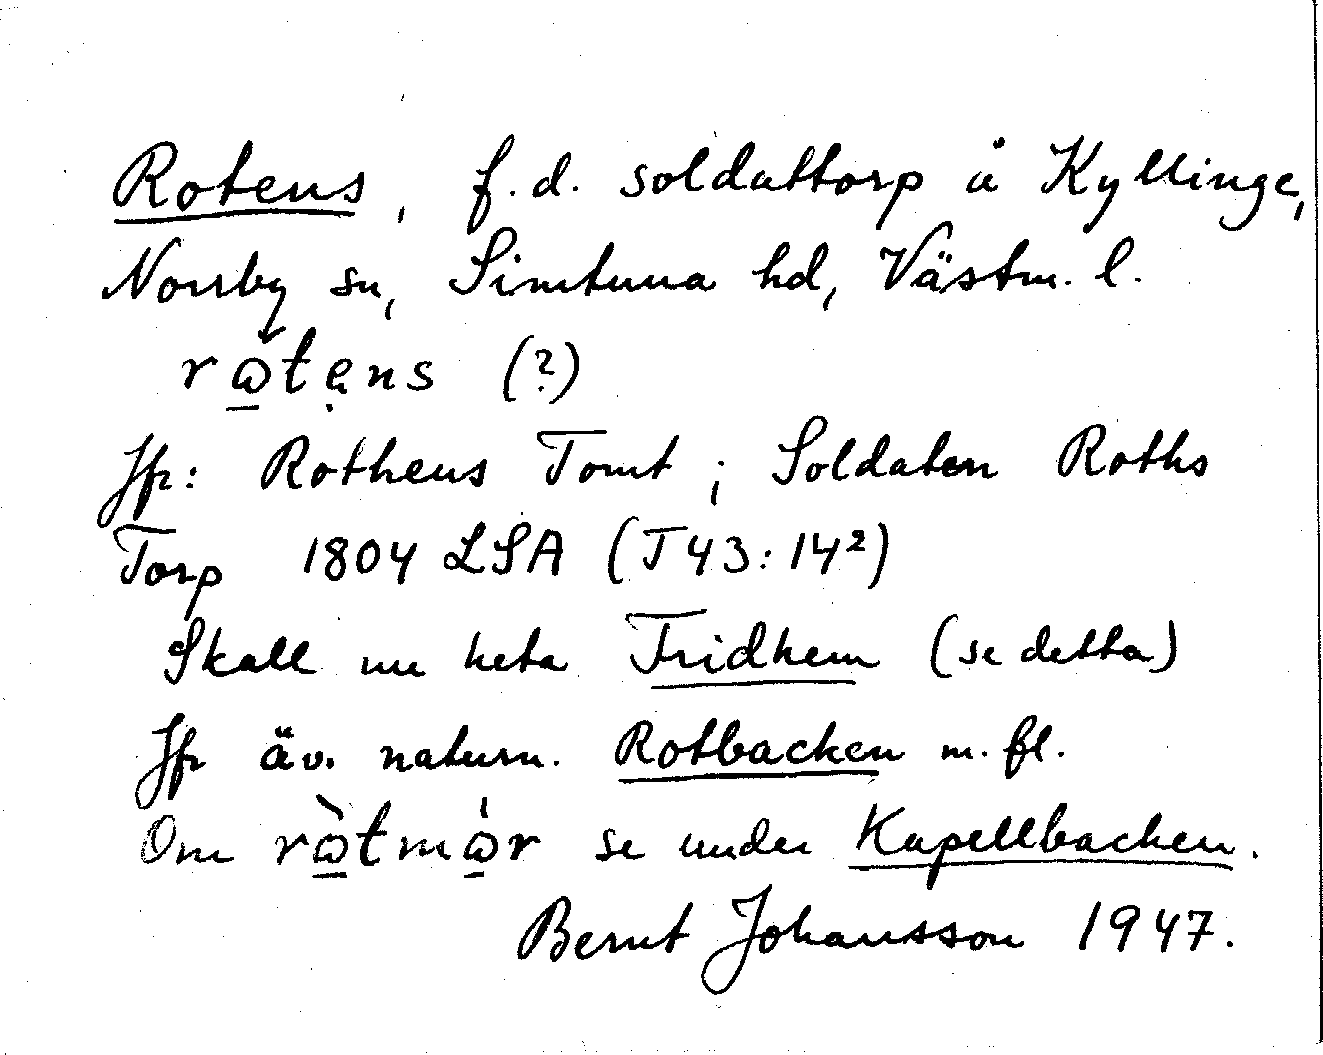 Rotens, f.d. soldattorp å Kyllinge,
Norrby sn, Simtuna hd, Västm. l.
rώ̲tẹns (?)
Jfr: Rothens Tomt ; Soldaten Roths
Torp 1804 LSA (T 43:14²)
Skall nu heta Fridhem (se detta)
Jfr äv. naturn. Rotbacken m. fl.
Om rὼ̲tmω̲̇r se under Kapellbacken.
Bernt Johansson 1947.